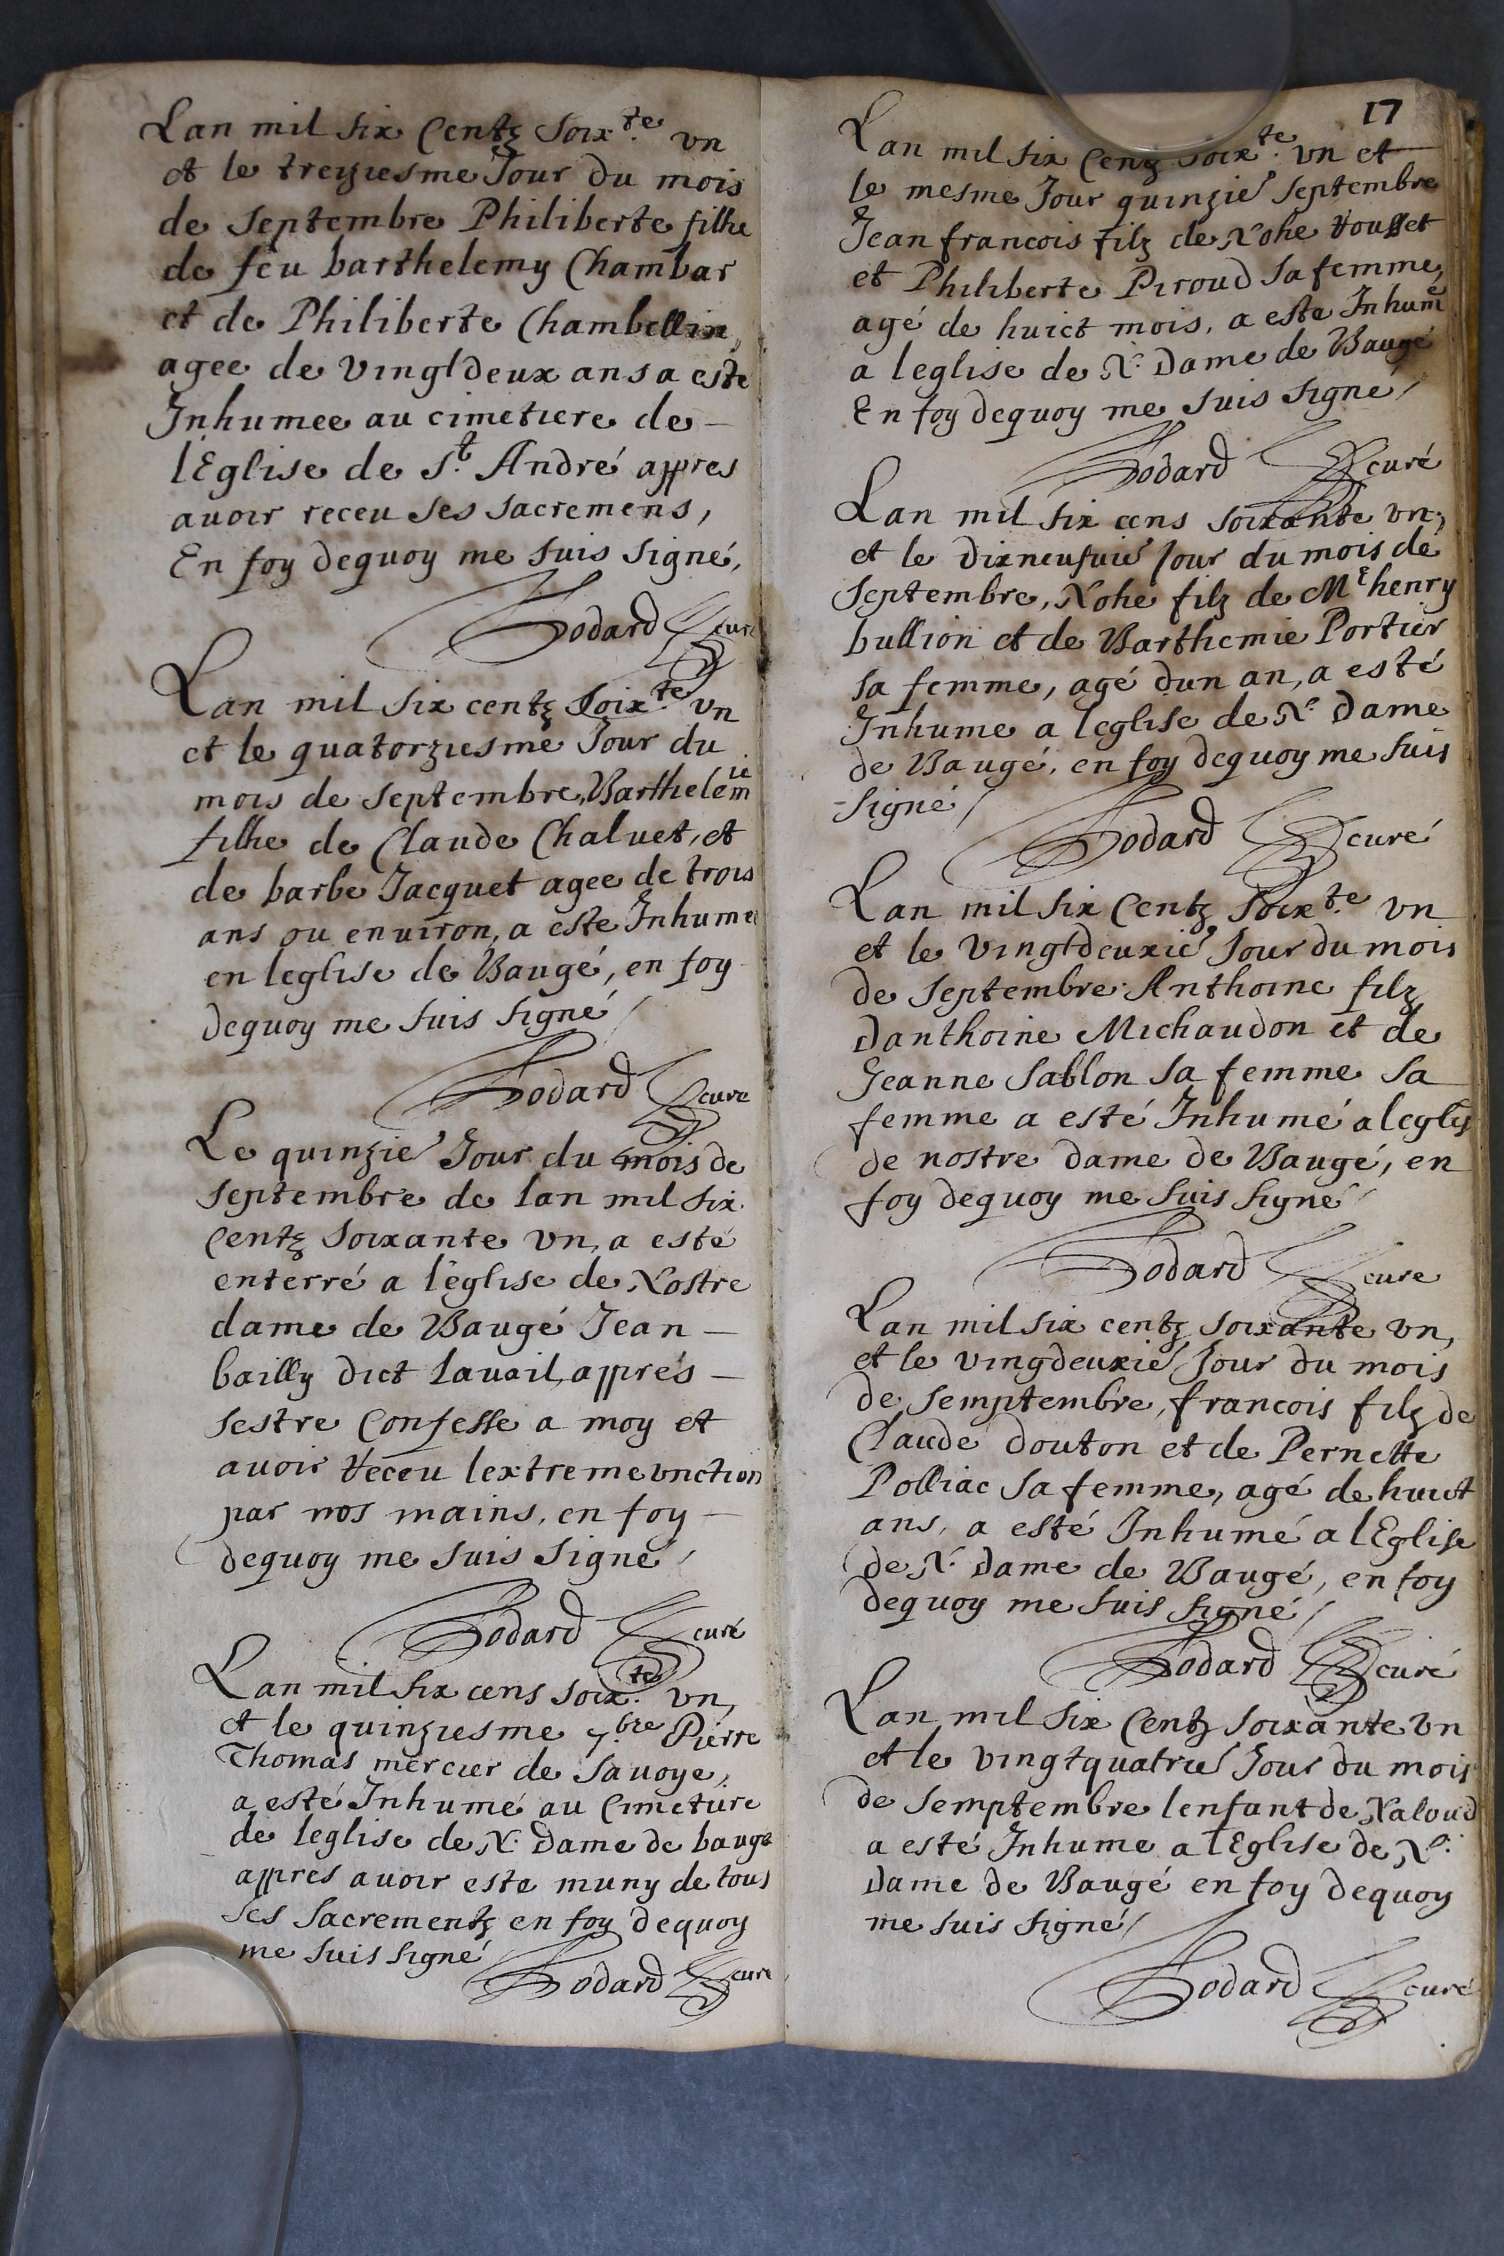 Lan mil six Centz Soix.te vn
et le treziesme Jour du mois
de Septembre Philiberte filhe
de feu barthelemy Chambar
et de Philiberte Chambellin,
agee de vingt deux ans a este
Inhumee au cimetiere de
lEglise de S.t André appres
auoir receu ses sacremens,
En foy dequoy me suis signé,
Godard curé
Lan mil six centz Soix.te vn
et le quatorziesme Jour du
mois de septembre, Barthelemie
filhe de Claude Chaluet, et
de barbe Jacquet agee de trois
ans ou enuiron, a este Inhumee
en leglise de Baugé, en foy
dequoy me suis signé /
Godard curé
Le quinzie Jour du mois de
septembre de lan mil six
Centz soixante vn, a esté
enterré a l'eglise de Nostre
dame de Baugé Jean
bailly dict lauail, apprés
sestre Confesse a moy et
auoir receu lextreme vnction
par nos mains, en foy
dequoy me suis signé /
Godard curé
Lan mil six cens soix.te vn,
et le quinziesme 7.bre Pierre
Thomas mercier de Sauoye,
a esté Inhumé au Cimetiere
de leglise de N. Dame de baugé
appres auoir este muny de tous
ses Sacrementz en foy dequoy
me suis signé
Godard curé
17
Lan mil six Centz Soix.te vn et
le mesme Jour quinzie Septembre
Jean francois filz de Nohe Vousset
et Philiberte Piroud sa femme,
agé de huict mois, a este Inhumé
a leglise de N. Dame de Baugé
En foy dequoy me suis signé /
Godard curé
Lan mil six cens soixante vn,
et le dixneufuie Jour du mois de
Septembre, Nohe filz de Me henry
bullion et de Barthemie Portier
sa femme, agé dun an, a esté
Inhume a leglise de N. Dame
de Baugé, en foy dequoy me suis
signé /
Godard curé
Lan mil six Centz Soix.te vn
et le vingtdeuxie Jour du mois
de Septembre Anthoine filz
Danthoine Michaudon et de
Jeanne Sablon sa femme sa
femme a esté Inhumé a leglis
de nostre dame de Baugé, en
foy dequoy me suis signé /
Godard curé
Lan mil six centz soixante vn,
et le vingdeuxie Jour du mois
de Semptembre, francois filz de
Claude douton et de Pernette
Polliac sa femme, agé de huict
ans, a esté Inhumé a lEglise
de N. Dame de Baugé, en foy
dequoy me suis signé /
Godard curé
Lan mil six Centz soixante vn
et le vingtquatrie Jour du mois
de Semptembre lenfant de Naloud
a esté Inhume a lEglise de N.
Dame de Baugé en foy dequoy
me suis signé /
Godard curé